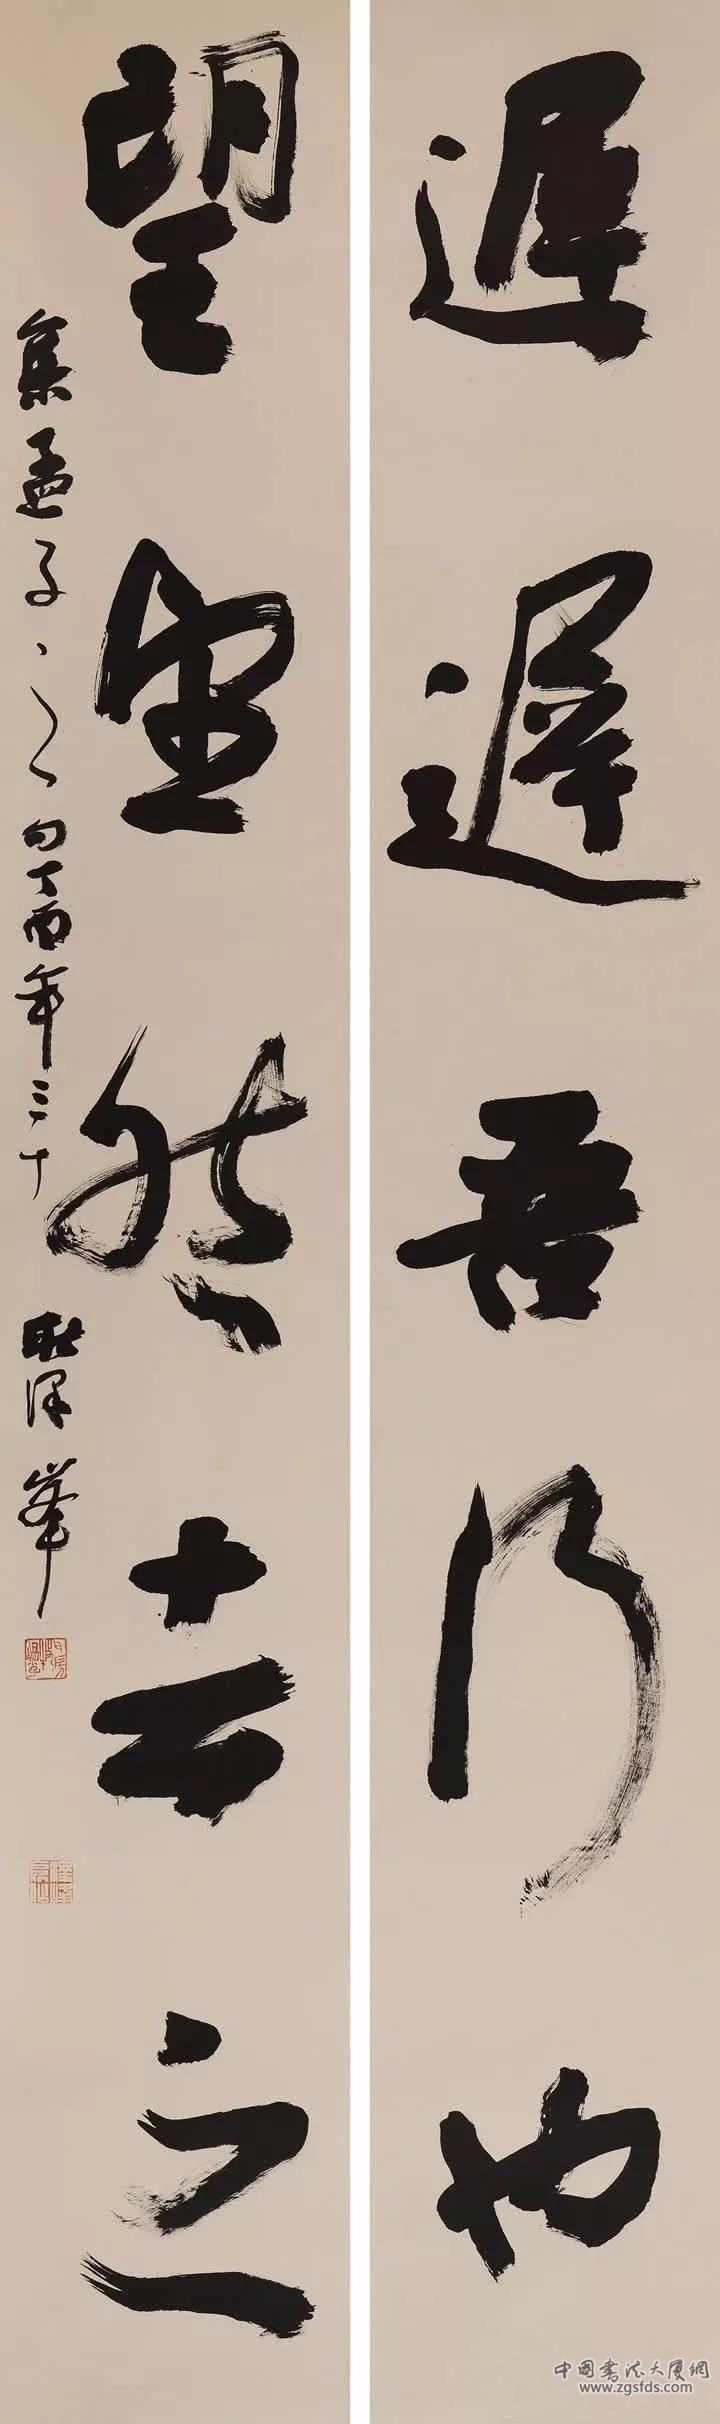 遲遲吾行也
望望然去之
集孟子之句丁酉年三十
耿泽峯
中國書法大厦網
www.zgsfds.com